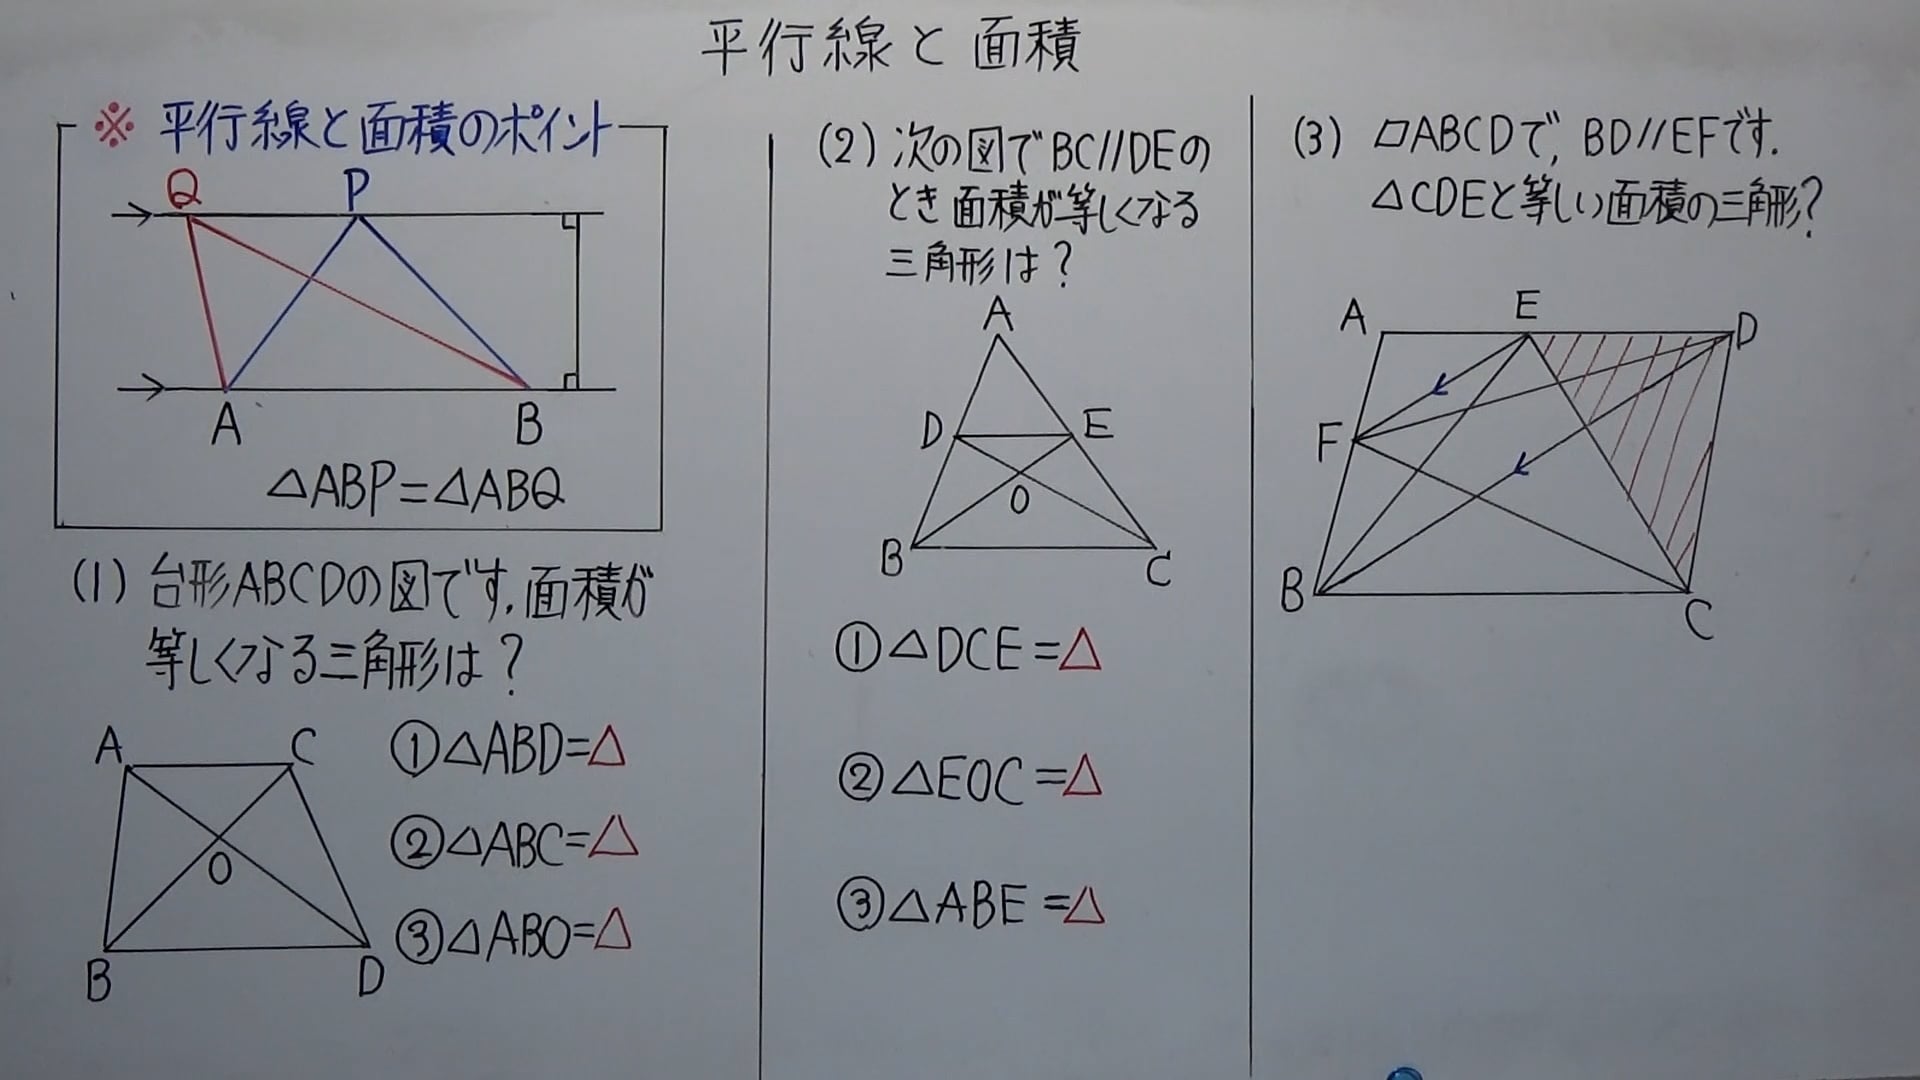 平行線と面積
※ 平行線と面積のポイント
Q P
A B
△ABP=△ABQ
(1) 台形ABCDの図です.面積が
等しくなる三角形は?
A C
O
B D
①△ABD=△
②△ABC=△
③△ABO=△
(2) 次の図でBC//DEの
とき面積が等しくなる
三角形は?
A
D E
O
B C
①△DCE=△
②△EOC=△
③△ABE=△
(3) ▱ABCDで, BD//EFです.
△CDEと等しい面積の三角形?
A E D
F
B C